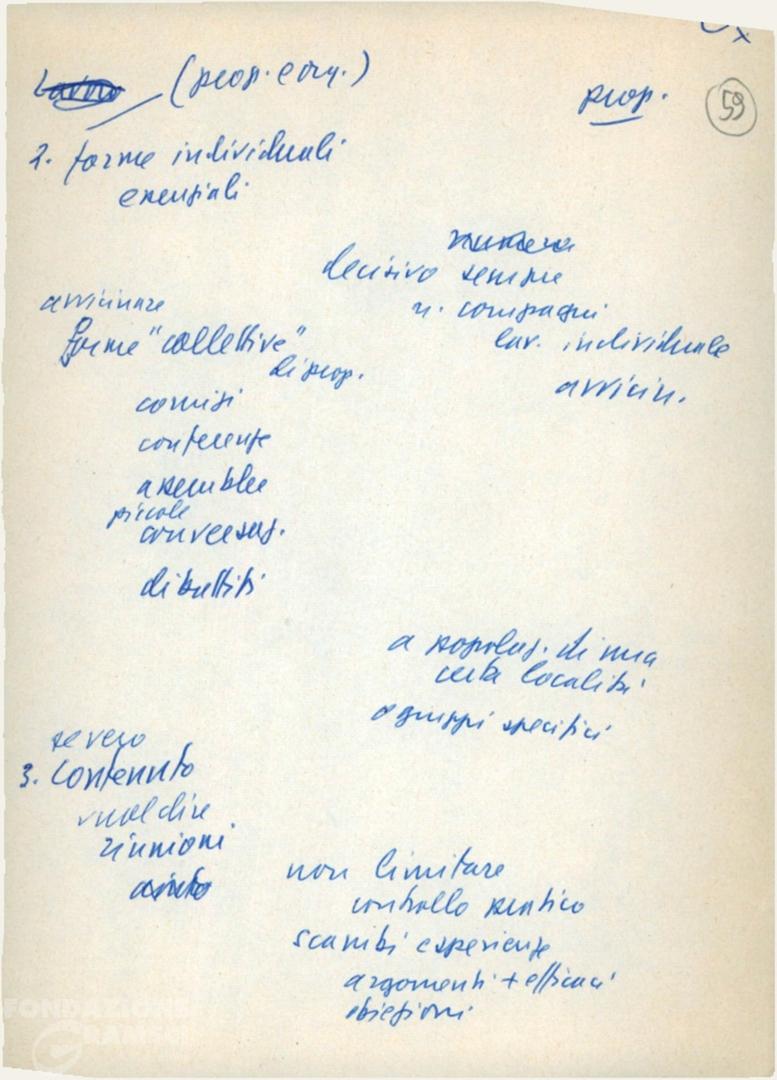 (prop. e org.)
prop.
59
2. forme individuali
essenziali
numero
decisivo sempre
n. compagni
lav. individuale
avvicin.
avvicinare
forme "collettive"
di prop.
comizi
conferenze
assemblee
piccole
conversaz.
dibattiti
a popolaz. di una
certa località
o gruppi specifici
severo
3. Contenuto
vuol dire
riunioni
aiuto
non limitare
controllo pratico
scambi esperienze
argomenti + efficaci
obiezioni
FONDAZIONE
GRAMSCI